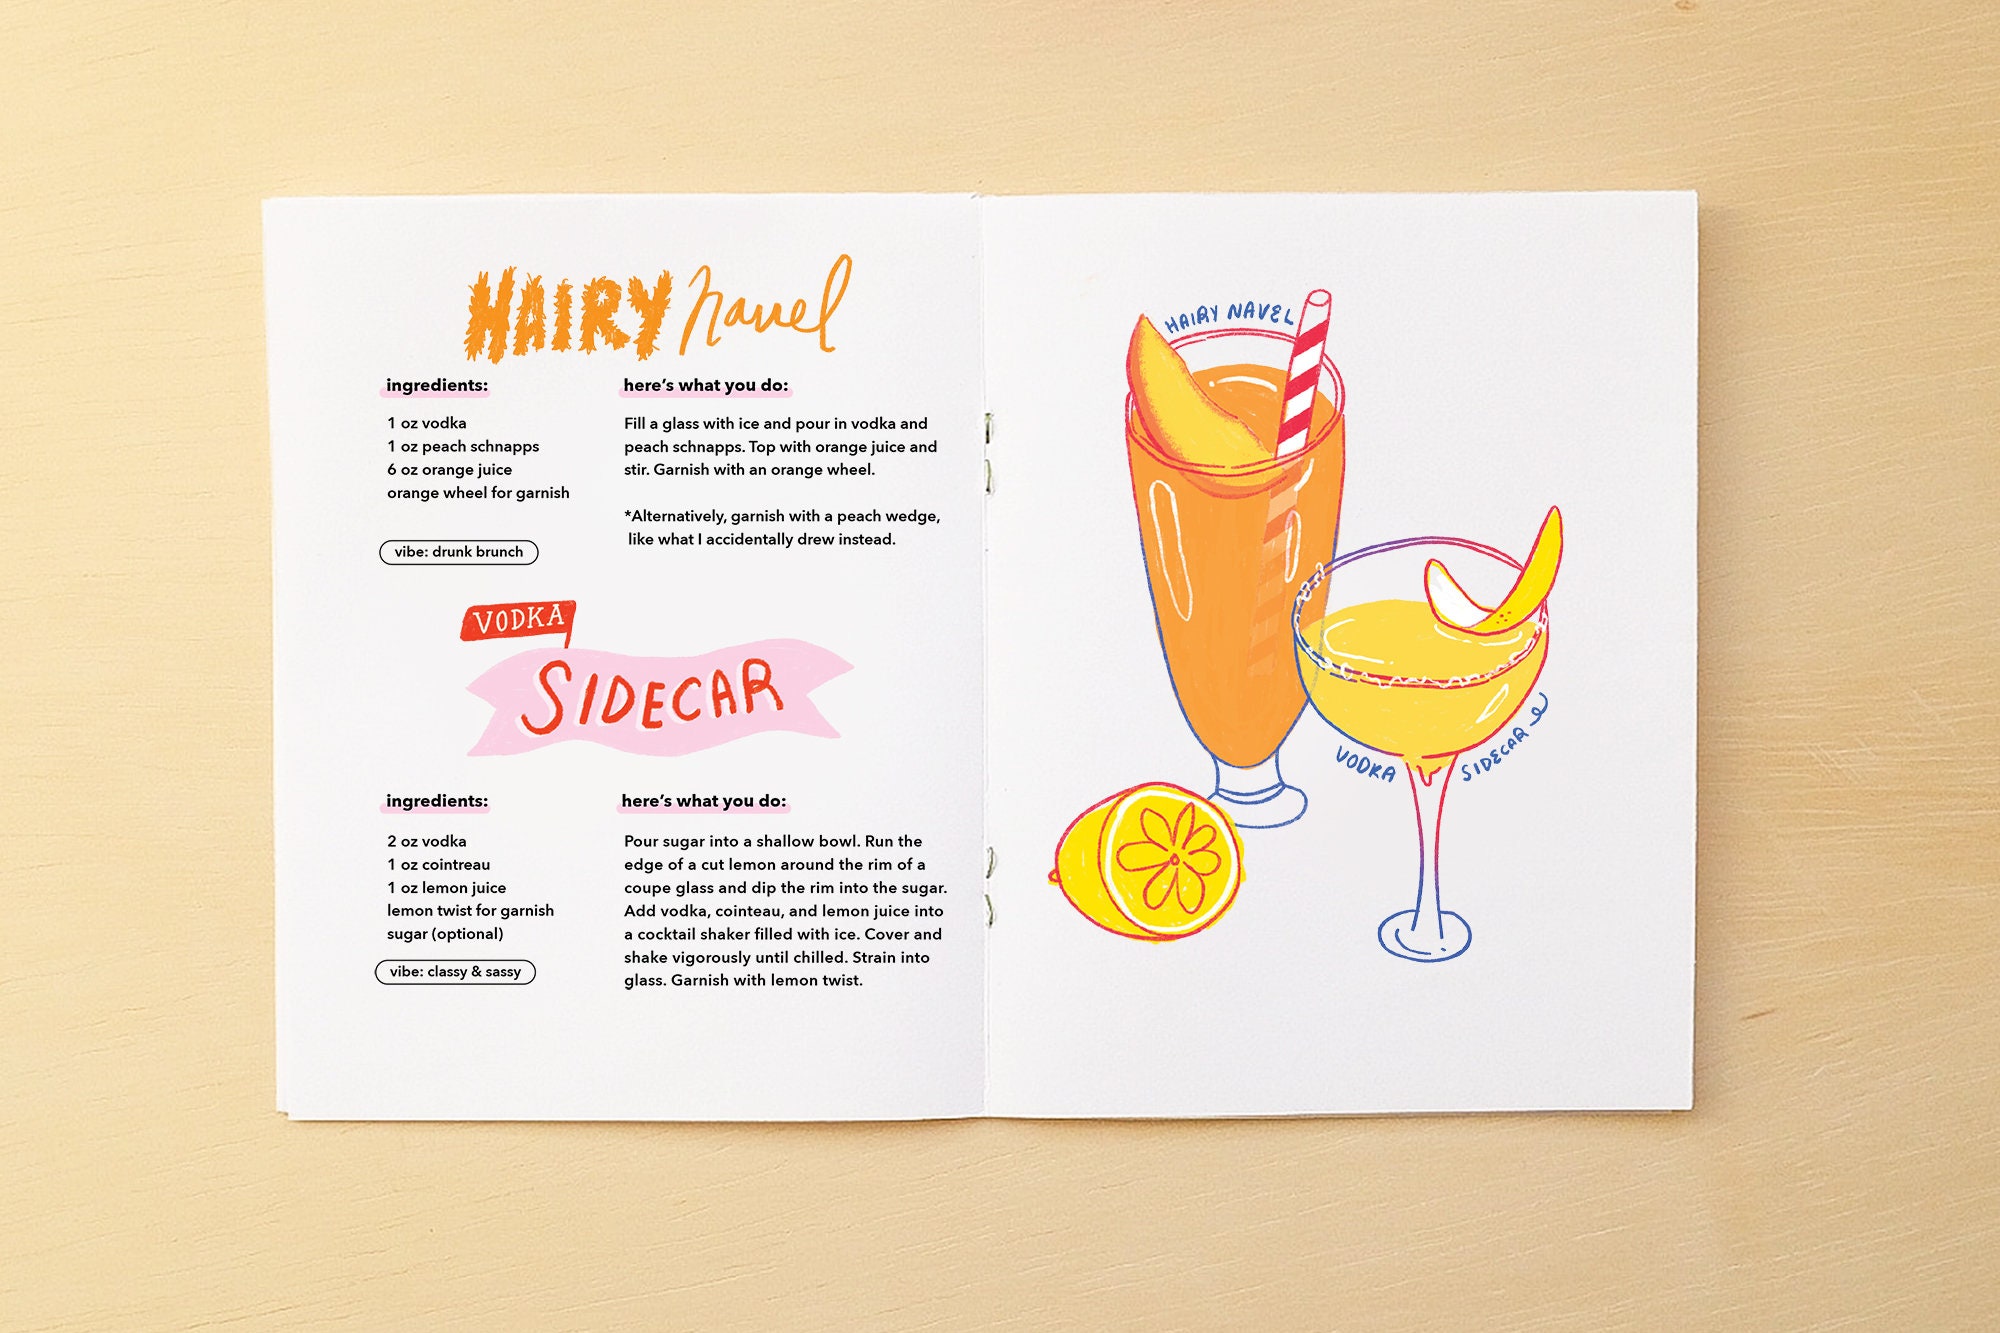 HAIRY navel
ingredients:
1 oz vodka
1 oz peach schnapps
6 oz orange juice
orange wheel for garnish
vibe: drunk brunch
here's what you do:
Fill a glass with ice and pour in vodka and
peach schnapps. Top with orange juice and
stir. Garnish with an orange wheel.
*Alternatively, garnish with a peach wedge,
like what I accidentally drew instead.
VODKA
SIDECAR
ingredients:
2 oz vodka
1 oz cointreau
1 oz lemon juice
lemon twist for garnish
sugar (optional)
vibe: classy & sassy
here's what you do:
Pour sugar into a shallow bowl. Run the
edge of a cut lemon around the rim of a
coupe glass and dip the rim into the sugar.
Add vodka, cointeau, and lemon juice into
a cocktail shaker filled with ice. Cover and
shake vigorously until chilled. Strain into
glass. Garnish with lemon twist.
HAIRY NAVEL
VODKA SIDECAR